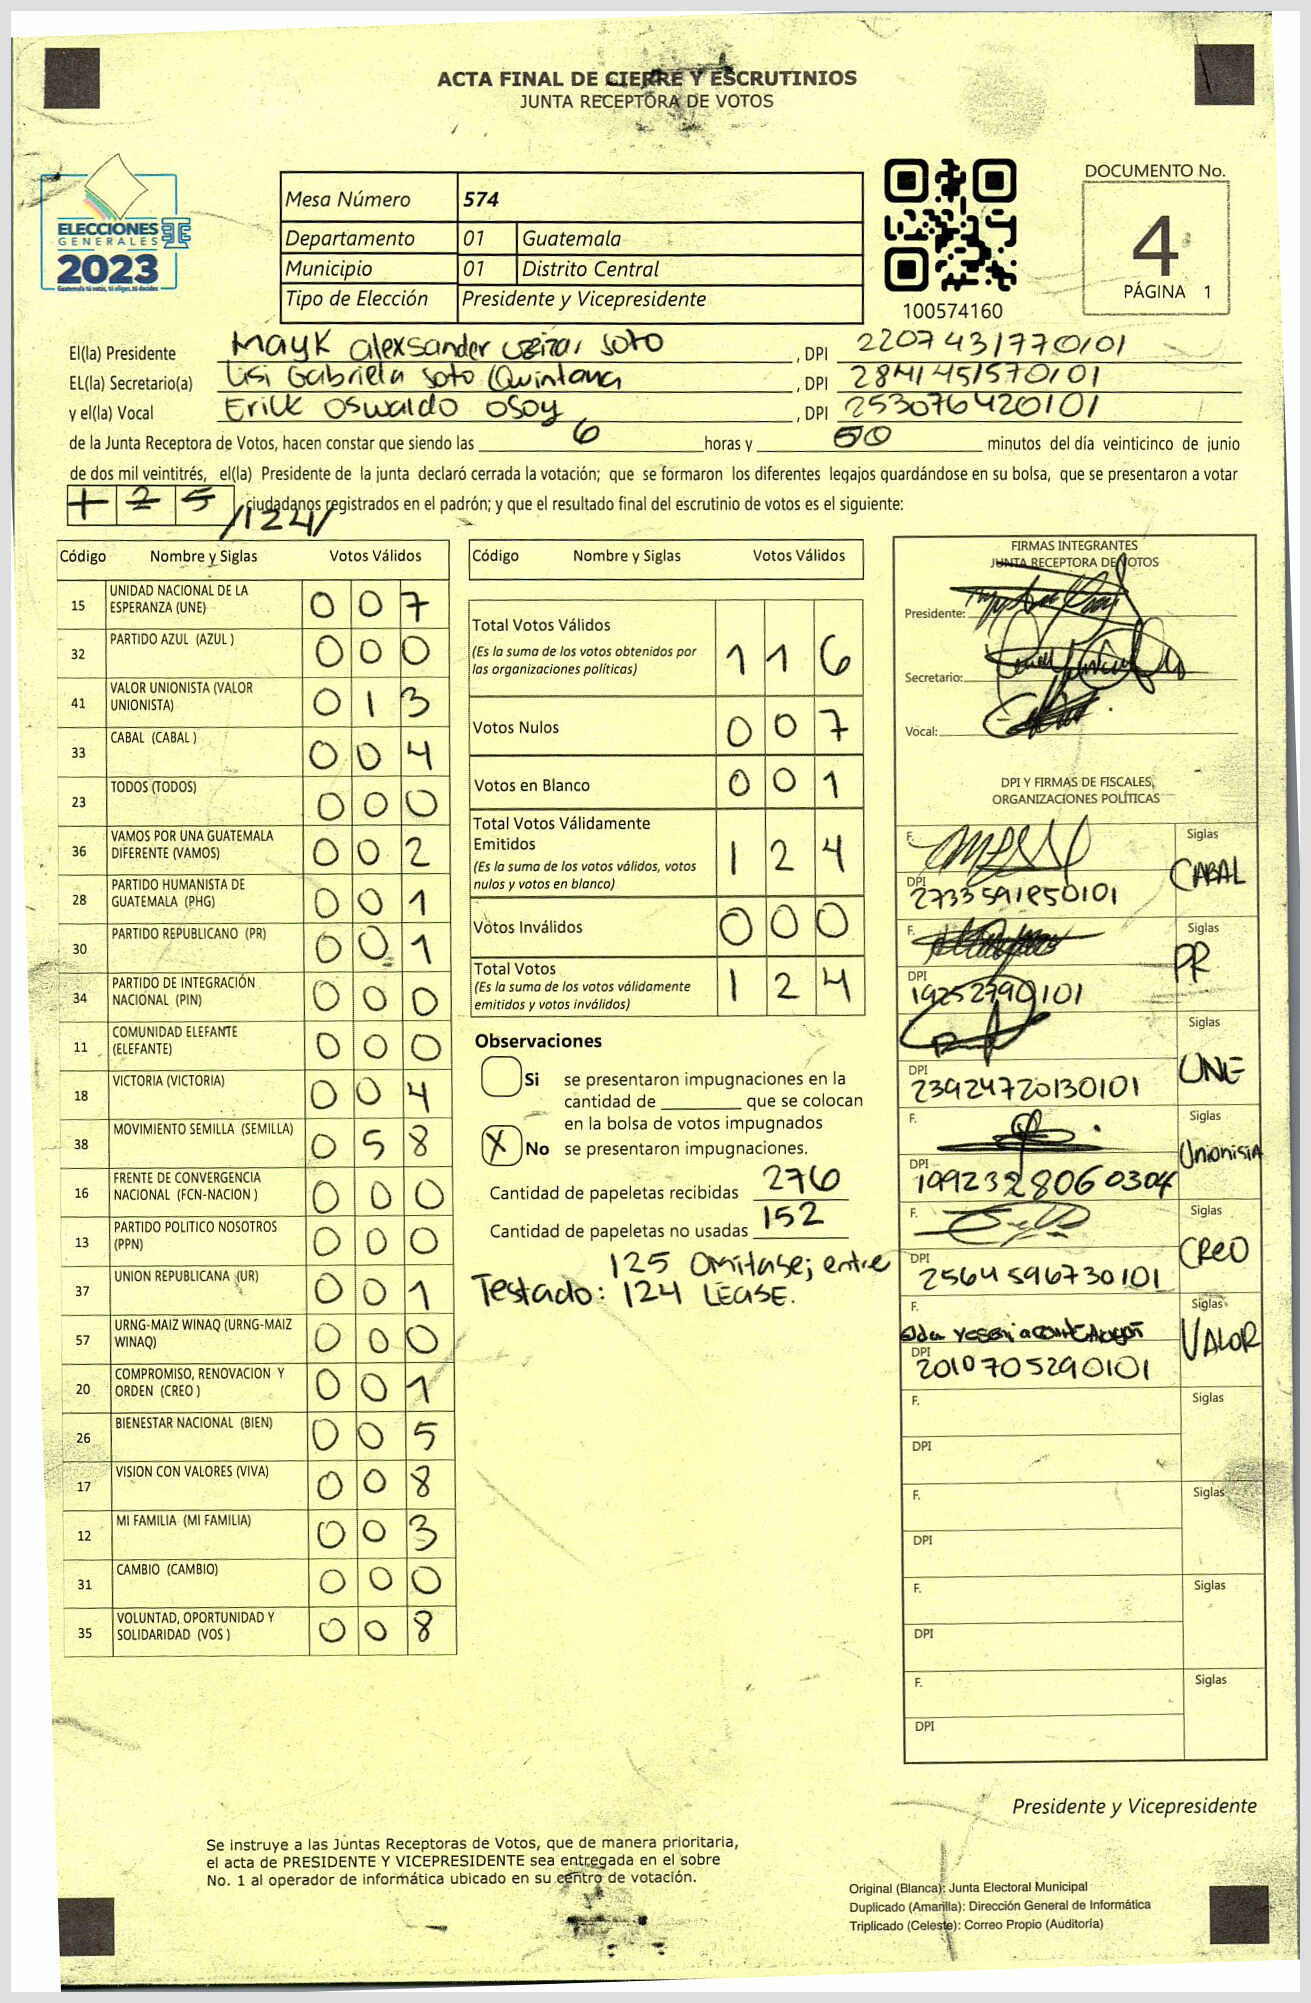 ACTA FINAL DE CIERRE Y ESCRUTINIOS
JUNTA RECEPTORA DE VOTOS
ELECCIONES
GENERALES
2023
Mesa Número 574
Departamento 01 Guatemala
Municipio 01 Distrito Central
Tipo de Elección Presidente y Vicepresidente
100574160
DOCUMENTO No.
4
PÁGINA 1
El(la) Presidente Mayk alexsander soto , DPI 2207431770101
EL(la) Secretario(a) Lisi Gabriela soto Quintana , DPI 2841451570101
y el(la) Vocal Erick Oswaldo Osoy , DPI 253076420101
de la Junta Receptora de Votos, hacen constar que siendo las 6 horas y 50 minutos del día veinticinco de junio
de dos mil veintitrés, el(la) Presidente de la junta declaró cerrada la votación; que se formaron los diferentes legajos guardándose en su bolsa, que se presentaron a votar
125 /124/ ciudadanos registrados en el padrón; y que el resultado final del escrutinio de votos es el siguiente:
Código Nombre y Siglas Votos Válidos
15 UNIDAD NACIONAL DE LA ESPERANZA (UNE) 0 0 7
32 PARTIDO AZUL (AZUL ) 0 0 0
41 VALOR UNIONISTA (VALOR UNIONISTA) 0 1 3
33 CABAL (CABAL ) 0 0 4
23 TODOS (TODOS) 0 0 0
36 VAMOS POR UNA GUATEMALA DIFERENTE (VAMOS) 0 0 2
28 PARTIDO HUMANISTA DE GUATEMALA (PHG) 0 0 1
30 PARTIDO REPUBLICANO (PR) 0 0 1
34 PARTIDO DE INTEGRACIÓN NACIONAL (PIN) 0 0 0
11 COMUNIDAD ELEFANTE (ELEFANTE) 0 0 0
18 VICTORIA (VICTORIA) 0 0 4
38 MOVIMIENTO SEMILLA (SEMILLA) 0 5 8
16 FRENTE DE CONVERGENCIA NACIONAL (FCN-NACION ) 0 0 0
13 PARTIDO POLITICO NOSOTROS (PPN) 0 0 0
37 UNION REPUBLICANA (UR) 0 0 1
57 URNG-MAIZ WINAQ (URNG-MAIZ WINAQ) 0 0 0
20 COMPROMISO, RENOVACION Y ORDEN (CREO ) 0 0 1
26 BIENESTAR NACIONAL (BIEN) 0 0 5
17 VISION CON VALORES (VIVA) 0 0 8
12 MI FAMILIA (MI FAMILIA) 0 0 3
31 CAMBIO (CAMBIO) 0 0 0
35 VOLUNTAD, OPORTUNIDAD Y SOLIDARIDAD (VOS ) 0 0 8
Código Nombre y Siglas Votos Válidos
Total Votos Válidos 1 1 6
(Es la suma de los votos obtenidos por
las organizaciones políticas)
Votos Nulos 0 0 7
Votos en Blanco 0 0 1
Total Votos Válidamente
Emitidos 1 2 4
(Es la suma de los votos válidos, votos
nulos y votos en blanco)
Votos Inválidos 0 0 0
Total Votos 1 2 4
(Es la suma de los votos válidamente
emitidos y votos inválidos)
Observaciones
Si se presentaron impugnaciones en la
cantidad de ________ que se colocan
en la bolsa de votos impugnados
X No se presentaron impugnaciones.
Cantidad de papeletas recibidas 276
Cantidad de papeletas no usadas 152
125 Omitase; entre
Testado: 124 LEASE.
FIRMAS INTEGRANTES
JUNTA RECEPTORA DE VOTOS
Presidente:
Secretario:
Vocal:
DPI Y FIRMAS DE FISCALES,
ORGANIZACIONES POLÍTICAS
F. Siglas CABAL
DPI 2733591850101
F. Siglas PR
DPI 19252790101
Siglas UNE
DPI 23924720130101
F. Siglas Unionista
DPI 1992328060304
F. Siglas CREO
DPI 2564596730101
F. Siglas VALOR
DPI 2010705290101
F. Siglas
DPI
F. Siglas
DPI
F. Siglas
DPI
F. Siglas
DPI
Presidente y Vicepresidente
Se instruye a las Juntas Receptoras de Votos, que de manera prioritaria,
el acta de PRESIDENTE Y VICEPRESIDENTE sea entregada en el sobre
No. 1 al operador de informática ubicado en su centro de votación.
Original (Blanca): Junta Electoral Municipal
Duplicado (Amarilla): Dirección General de Informática
Triplicado (Celeste): Correo Propio (Auditoría)